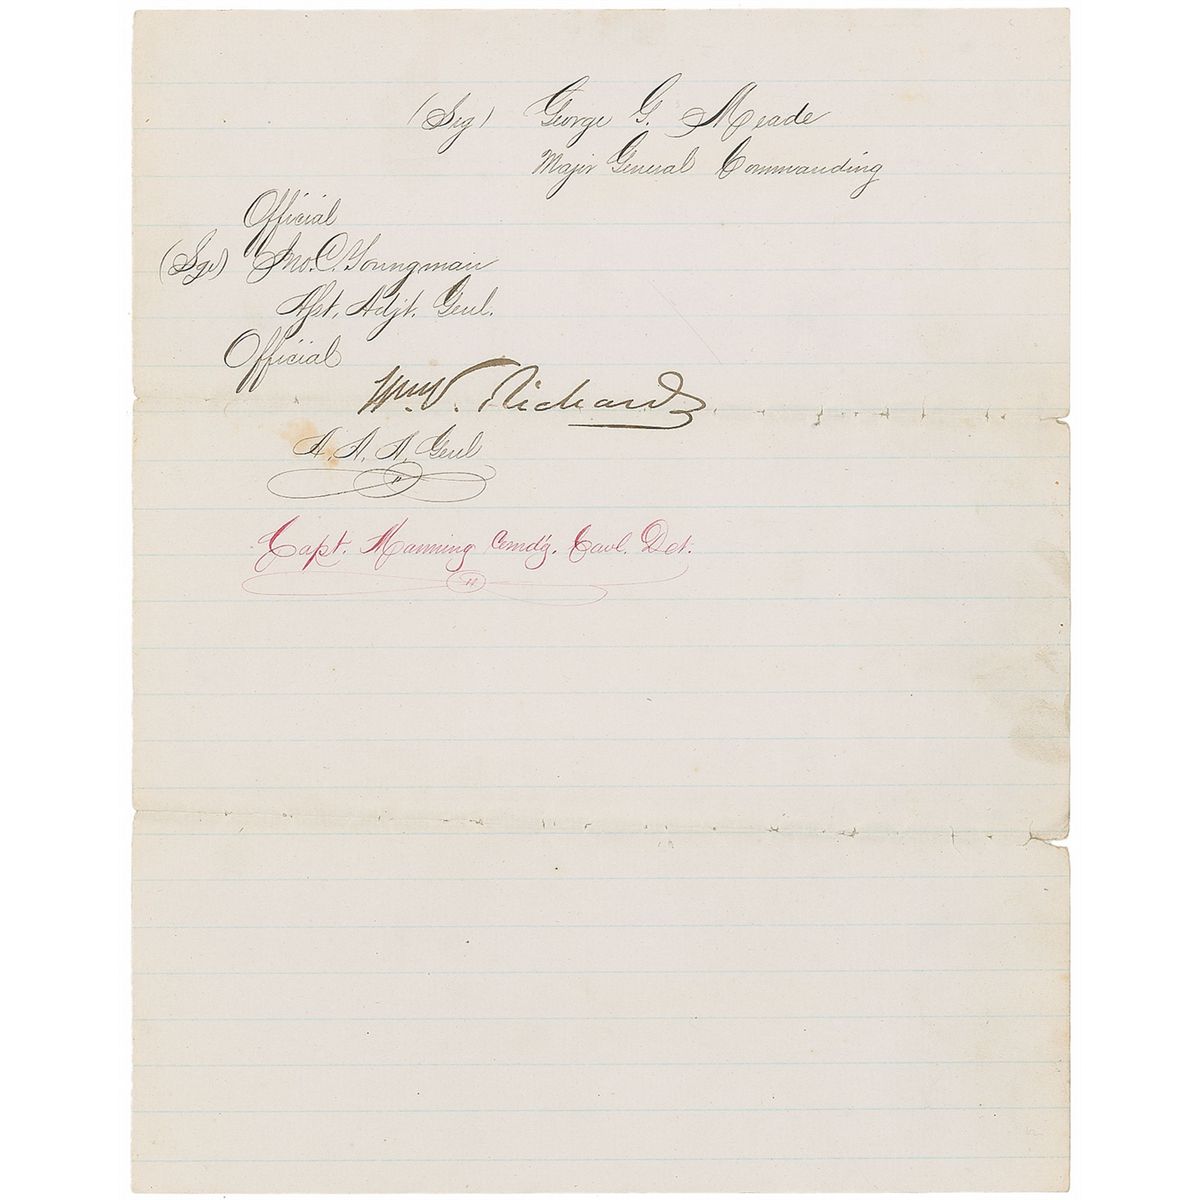 (Sig) George G. Meade
Major General Commanding
Official
(Sgd) Jno. C. Youngman
Asst. Adjt. Genl.
Official
Wm. V. Richards
A. A. A. Genl
Capt. Manning Comd'g. Cavl. Det.